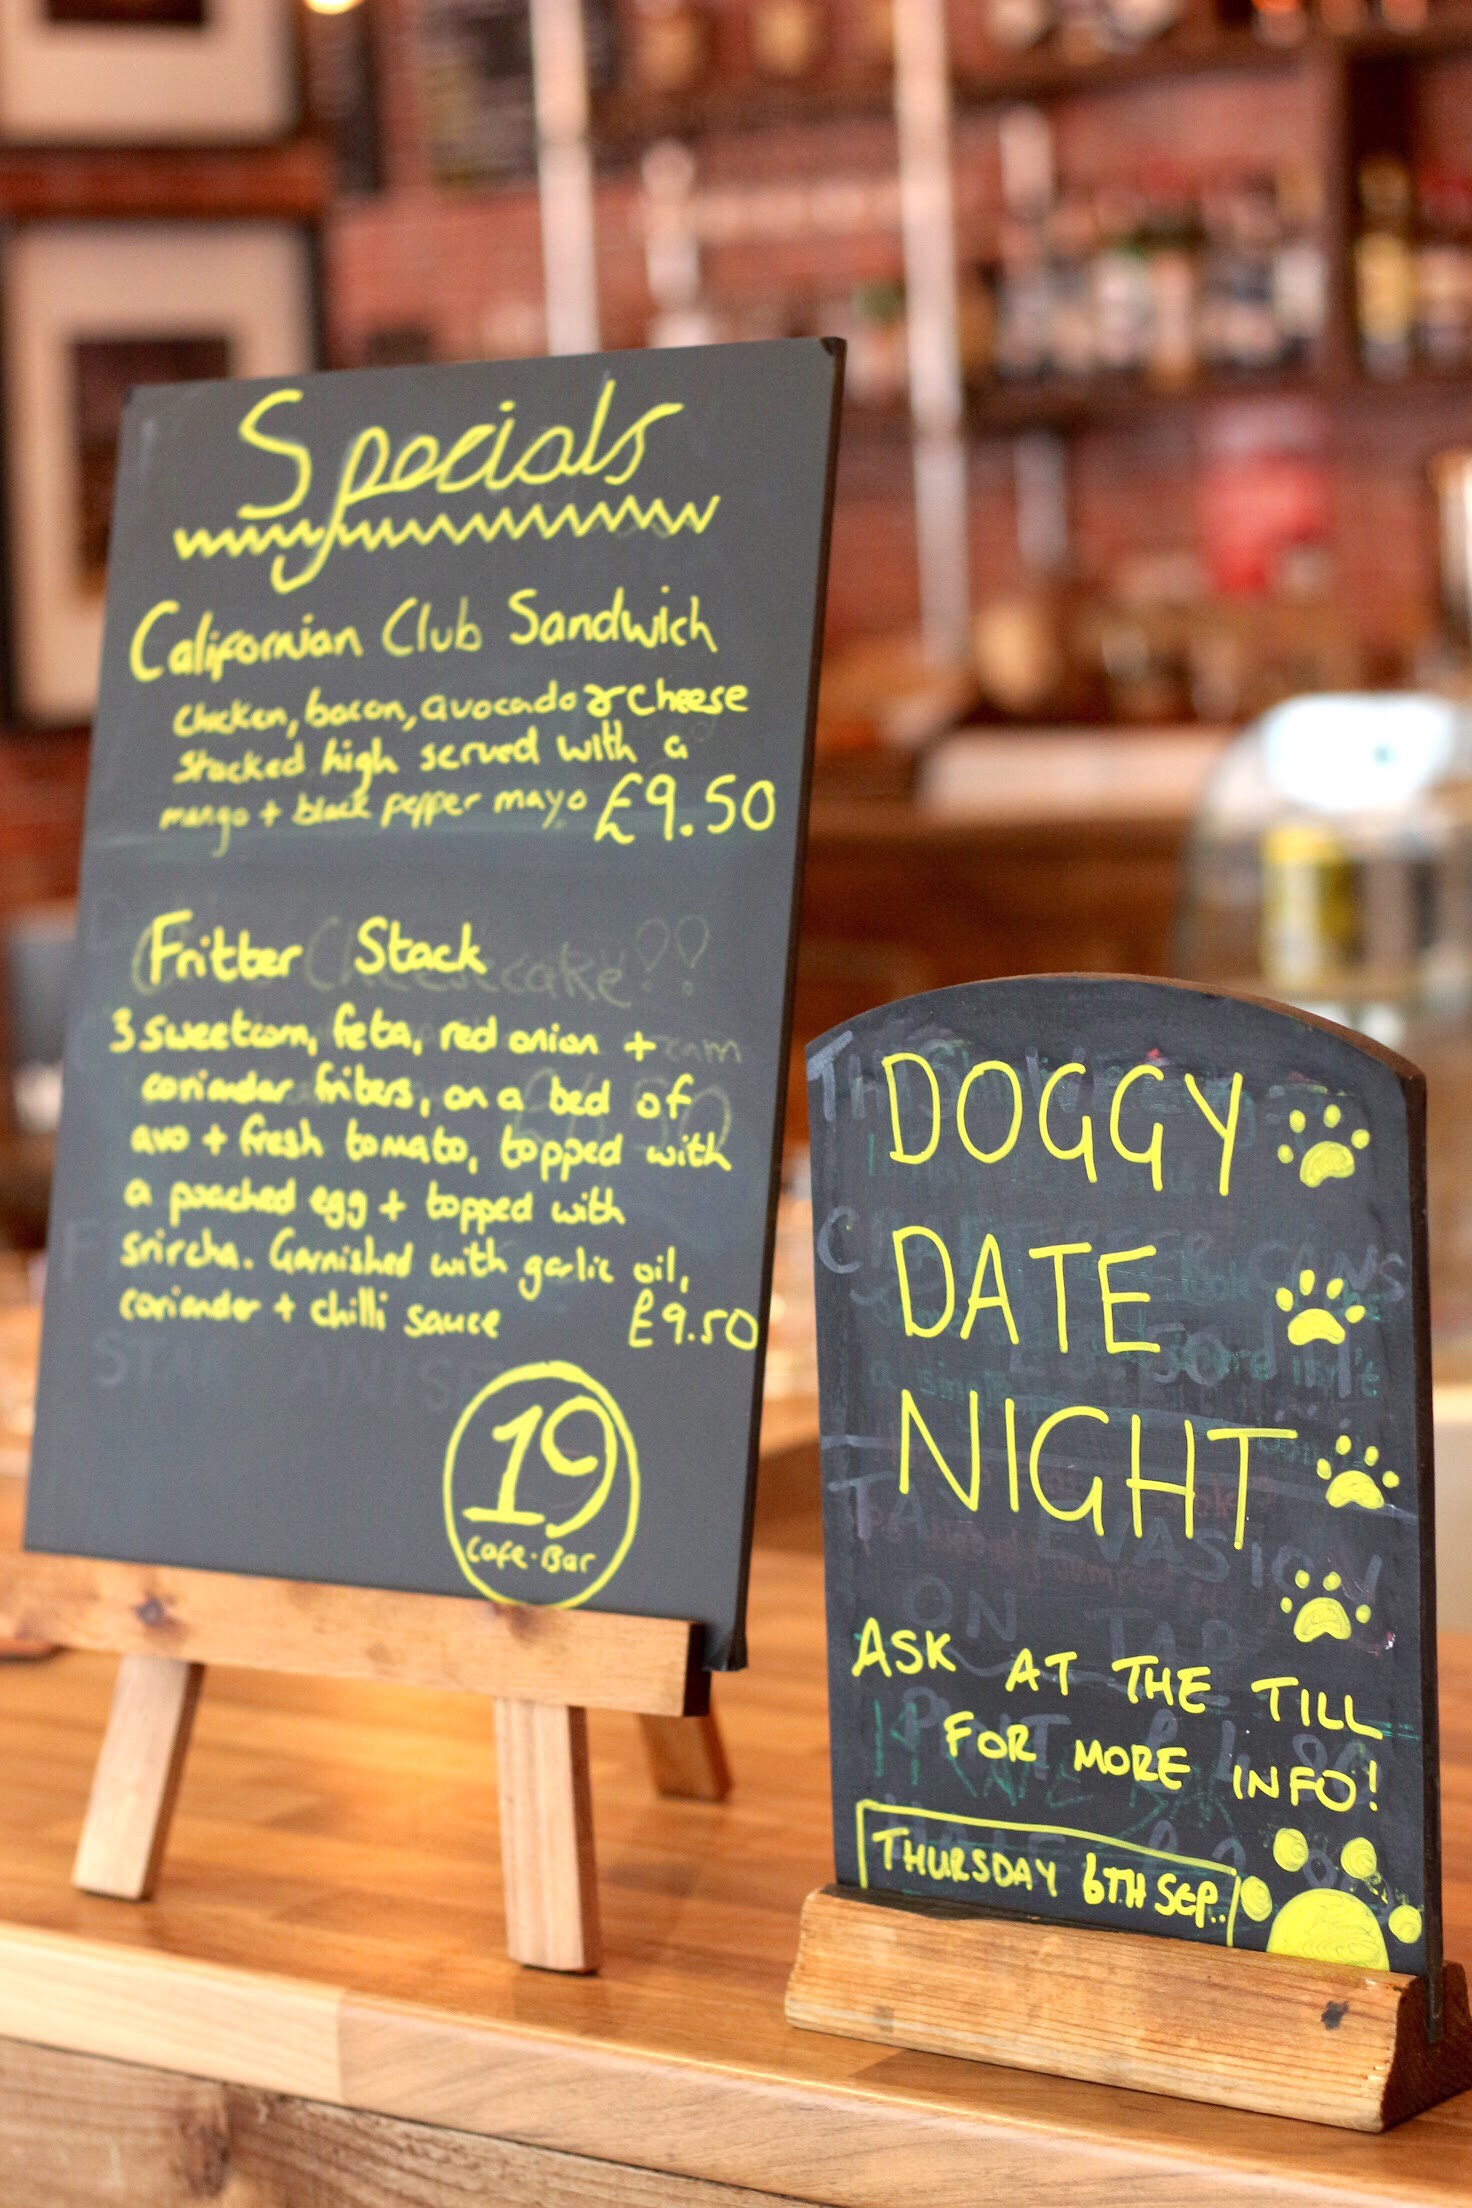 Specials
Californian Club Sandwich
Chicken, bacon, avocado & cheese
stacked high served with a
mango + black pepper mayo £9.50
Fritter Stack
3 sweetcorn, feta, red onion +
coriander friters, on a bed of
avo + fresh tomato, topped with
a poached egg + topped with
srircha. Garnished with garlic oil,
coriander + chilli sauce £9.50
19
Cafe·Bar
DOGGY
DATE
NIGHT
ASK AT THE TILL
FOR MORE INFO!
THURSDAY 6TH SEP..